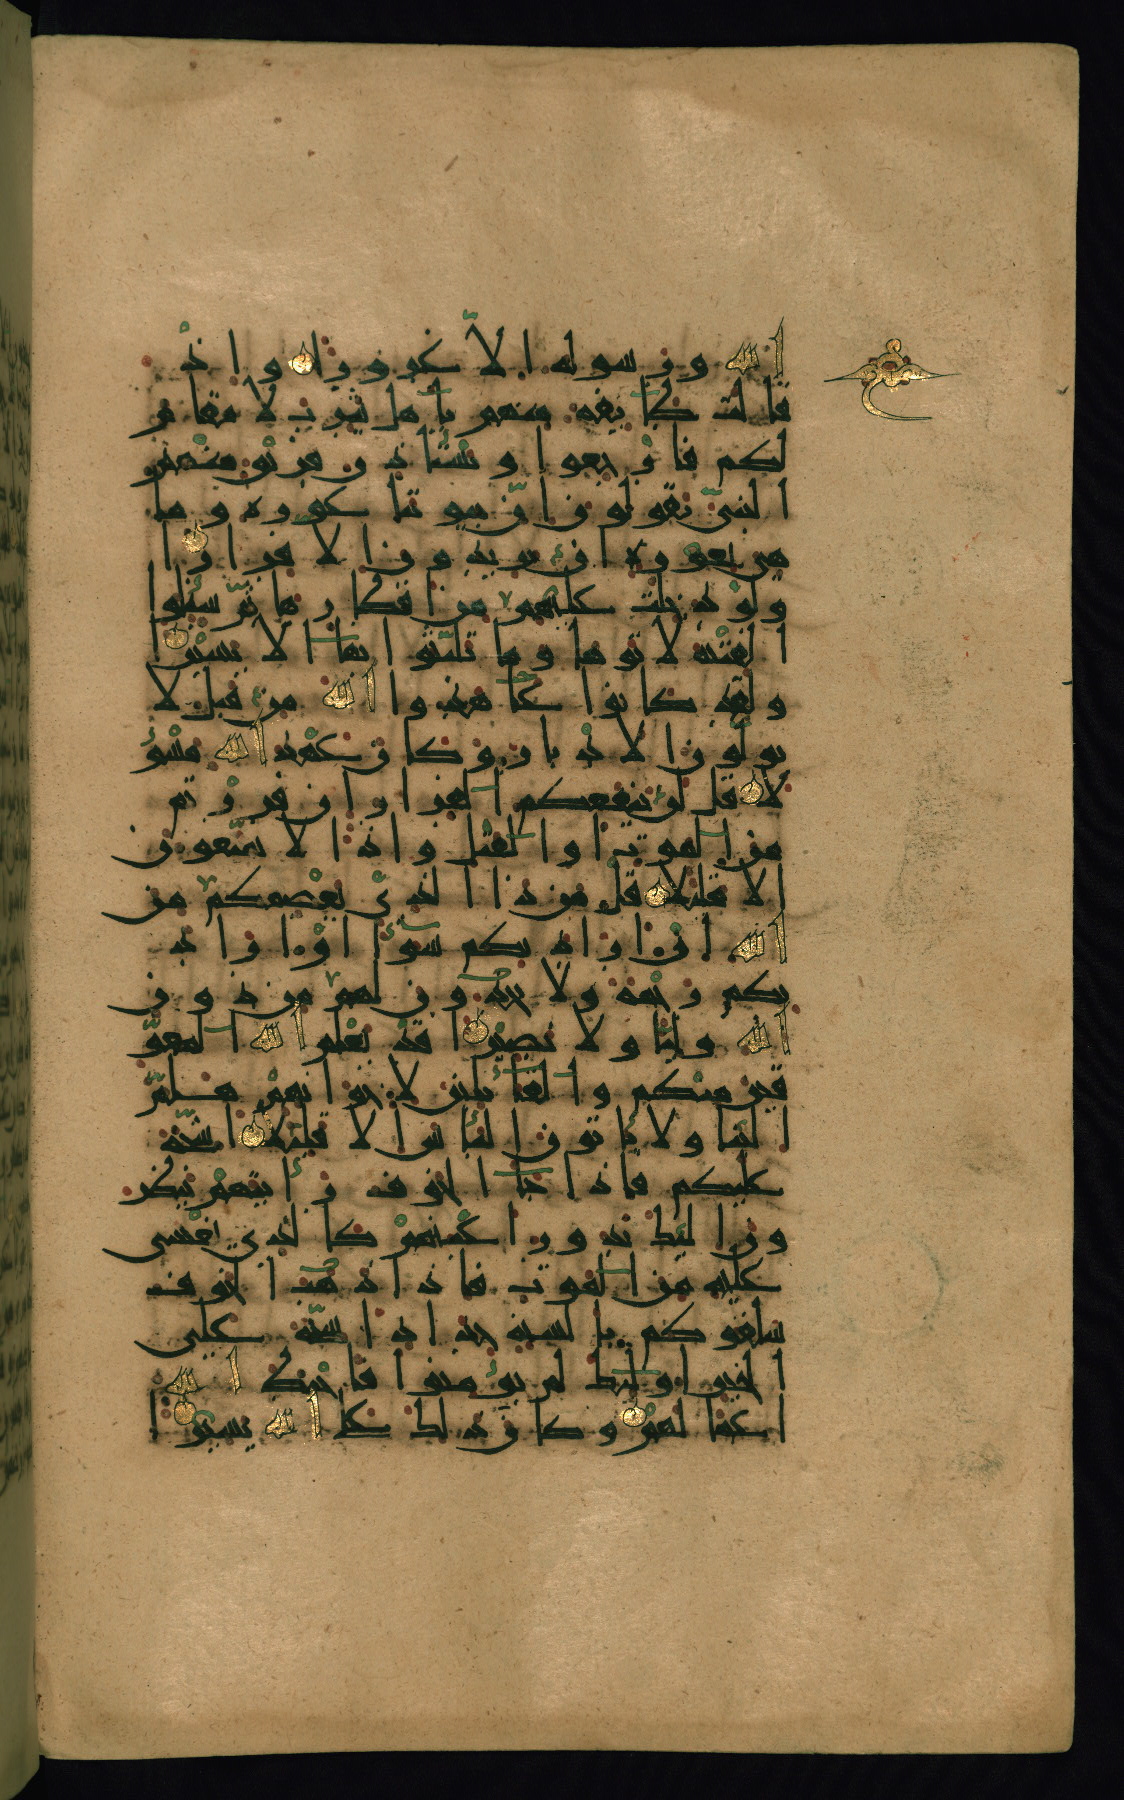 الله ورسوله الا غرورا واذ
قالت طائفة منهم ياهل يثرب لا مقام
لكم فارجعوا ويستأذن فريق منهم
النبي يقولون ان بيوتنا عورة وما
هي بعورة ان يريدون الا فرارا
ولو دخلت عليهم من اقطارها ثم سئلوا
الفتنة لاتوها وما تلبثوا بها الا يسيرا
ولقد كانوا عاهدوا الله من قبل لا
يولون الادبار وكان عهد الله مسؤ
لا قل لن ينفعكم الفرار ان فررتم
من الموت او القتل واذا لا تمتعون
الا قليلا قل من ذا الذي يعصمكم من
الله ان اراد بكم سوءا او اراد
بكم رحمة ولا يجدون لهم من دون
الله وليا ولا نصيرا قد يعلم الله المعو
قين منكم والقائلين لاخوانهم هلم
الينا ولا ياتون الباس الا قليلا اشحة
عليكم فاذا جاء الخوف رأيتهم ينظر
ون اليك تدور اعينهم كالذي يغشى
عليه من الموت فاذا ذهب الخوف
سلقوكم بالسنة حداد اشحة على
الخير اولئك لم يؤمنوا فاحبط الله
اعمالهم وكان ذلك على الله يسيرا